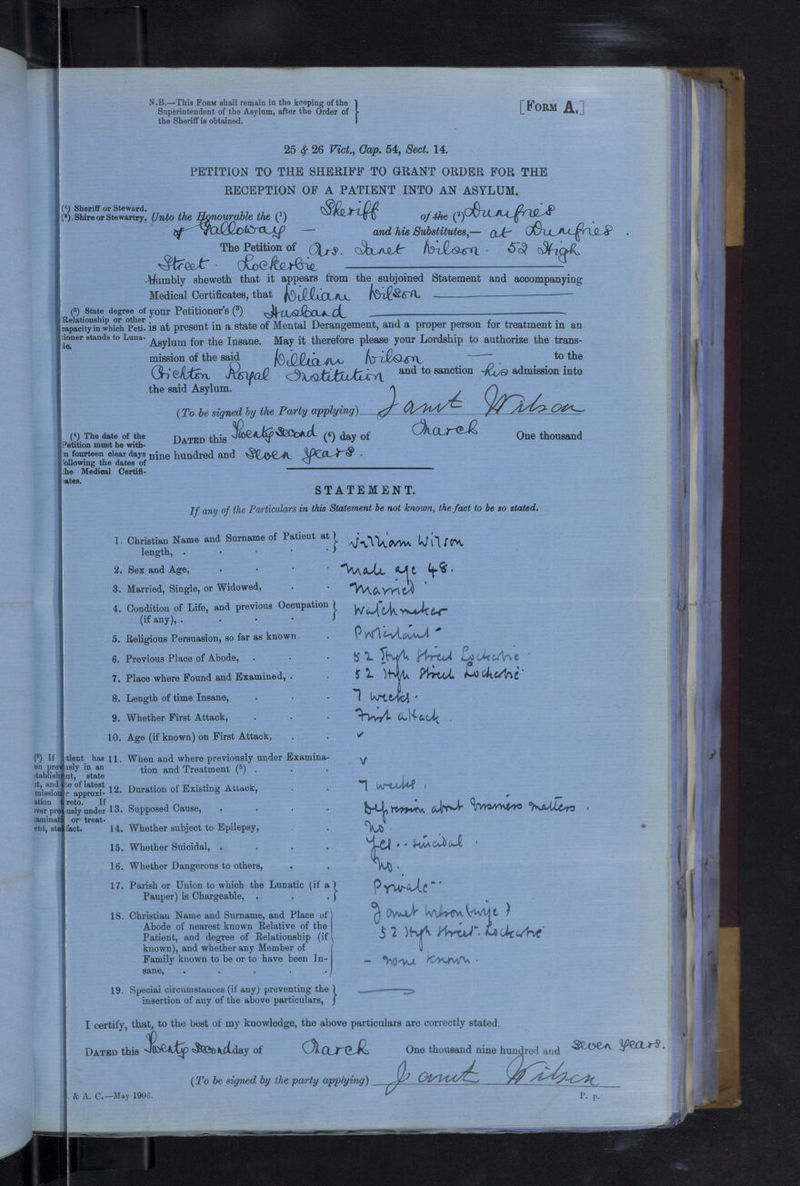 N.B.—This Form shall remain in the keeping of the
Superintendent of the Asylum, after the Order of
the Sheriff is obtained.
[Form A.]
25 & 26 Vict., Cap. 54, Sect. 14.
PETITION TO THE SHERIFF TO GRANT ORDER FOR THE
RECEPTION OF A PATIENT INTO AN ASYLUM.
(¹) Sheriff or Steward.
(²) Shire or Stewartry.
Unto the Honourable the (¹) Sheriff of the (²) Dumfries
of Galloway — and his Substitutes,— at Dumfries.
The Petition of Mrs. Janet Wilson. 52 High
Street. Lockerbie
Humbly sheweth that it appears from the subjoined Statement and accompanying
Medical Certificates, that William Wilson
(³) State degree of
Relationship or other
capacity in which Peti-
tioner stands to Luna-
tic.
your Petitioner's (³) Husband
is at present in a state of Mental Derangement, and a proper person for treatment in an
Asylum for the Insane. May it therefore please your Lordship to authorize the trans-
mission of the said William Wilson — to the
Crichton Royal Institution and to sanction his admission into
the said Asylum.
(To be signed by the Party applying) Janet Wilson
(⁴) The date of the
Petition must be with-
in fourteen clear days
following the dates of
the Medical Certifi-
cates.
Dated this Twenty Second (⁴) day of March One thousand
nine hundred and Seven years.
STATEMENT.
If any of the Particulars in this Statement be not known, the fact to be so stated.
1. Christian Name and Surname of Patient at
length, . William Wilson
2. Sex and Age, Male age 48.
3. Married, Single, or Widowed, Married
4. Condition of Life, and previous Occupation
(if any), . Watchmaker
5. Religious Persuasion, so far as known Protestant
6. Previous Place of Abode, 52 High Street Lockerbie
7. Place where Found and Examined, 52 High Street Lockerbie
8. Length of time Insane, 7 weeks.
9. Whether First Attack, First attack.
10. Age (if known) on First Attack, ✓
(⁵) If
tient has
en prev
usly in an
tablish
nt, state
it, and
te of latest
mission
r approxi-
ation t
reto. If
ever prev
usly under
aminati
or treat-
ent, stat
fact.
11. When and where previously under Examina-
tion and Treatment (⁵) . ✓
12. Duration of Existing Attack, 7 weeks.
13. Supposed Cause, Depression about business matters.
14. Whether subject to Epilepsy, No
15. Whether Suicidal, Yes - suicidal
16. Whether Dangerous to others, No.
17. Parish or Union to which the Lunatic (if a
Pauper) is Chargeable, Private
18. Christian Name and Surname, and Place of
Abode of nearest known Relative of the
Patient, and degree of Relationship (if
known), and whether any Member of
Family known to be or to have been In-
sane,
Janet Wilson (wife)
52 High Street. Lockerbie
— None known.
19. Special circumstances (if any) preventing the
insertion of any of the above particulars,
I certify, that, to the best of my knowledge, the above particulars are correctly stated.
Dated this Twenty Second day of March One thousand nine hundred and Seven years.
(To be signed by the party applying) Janet Wilson
& A. C.—May 1906.
P. p.